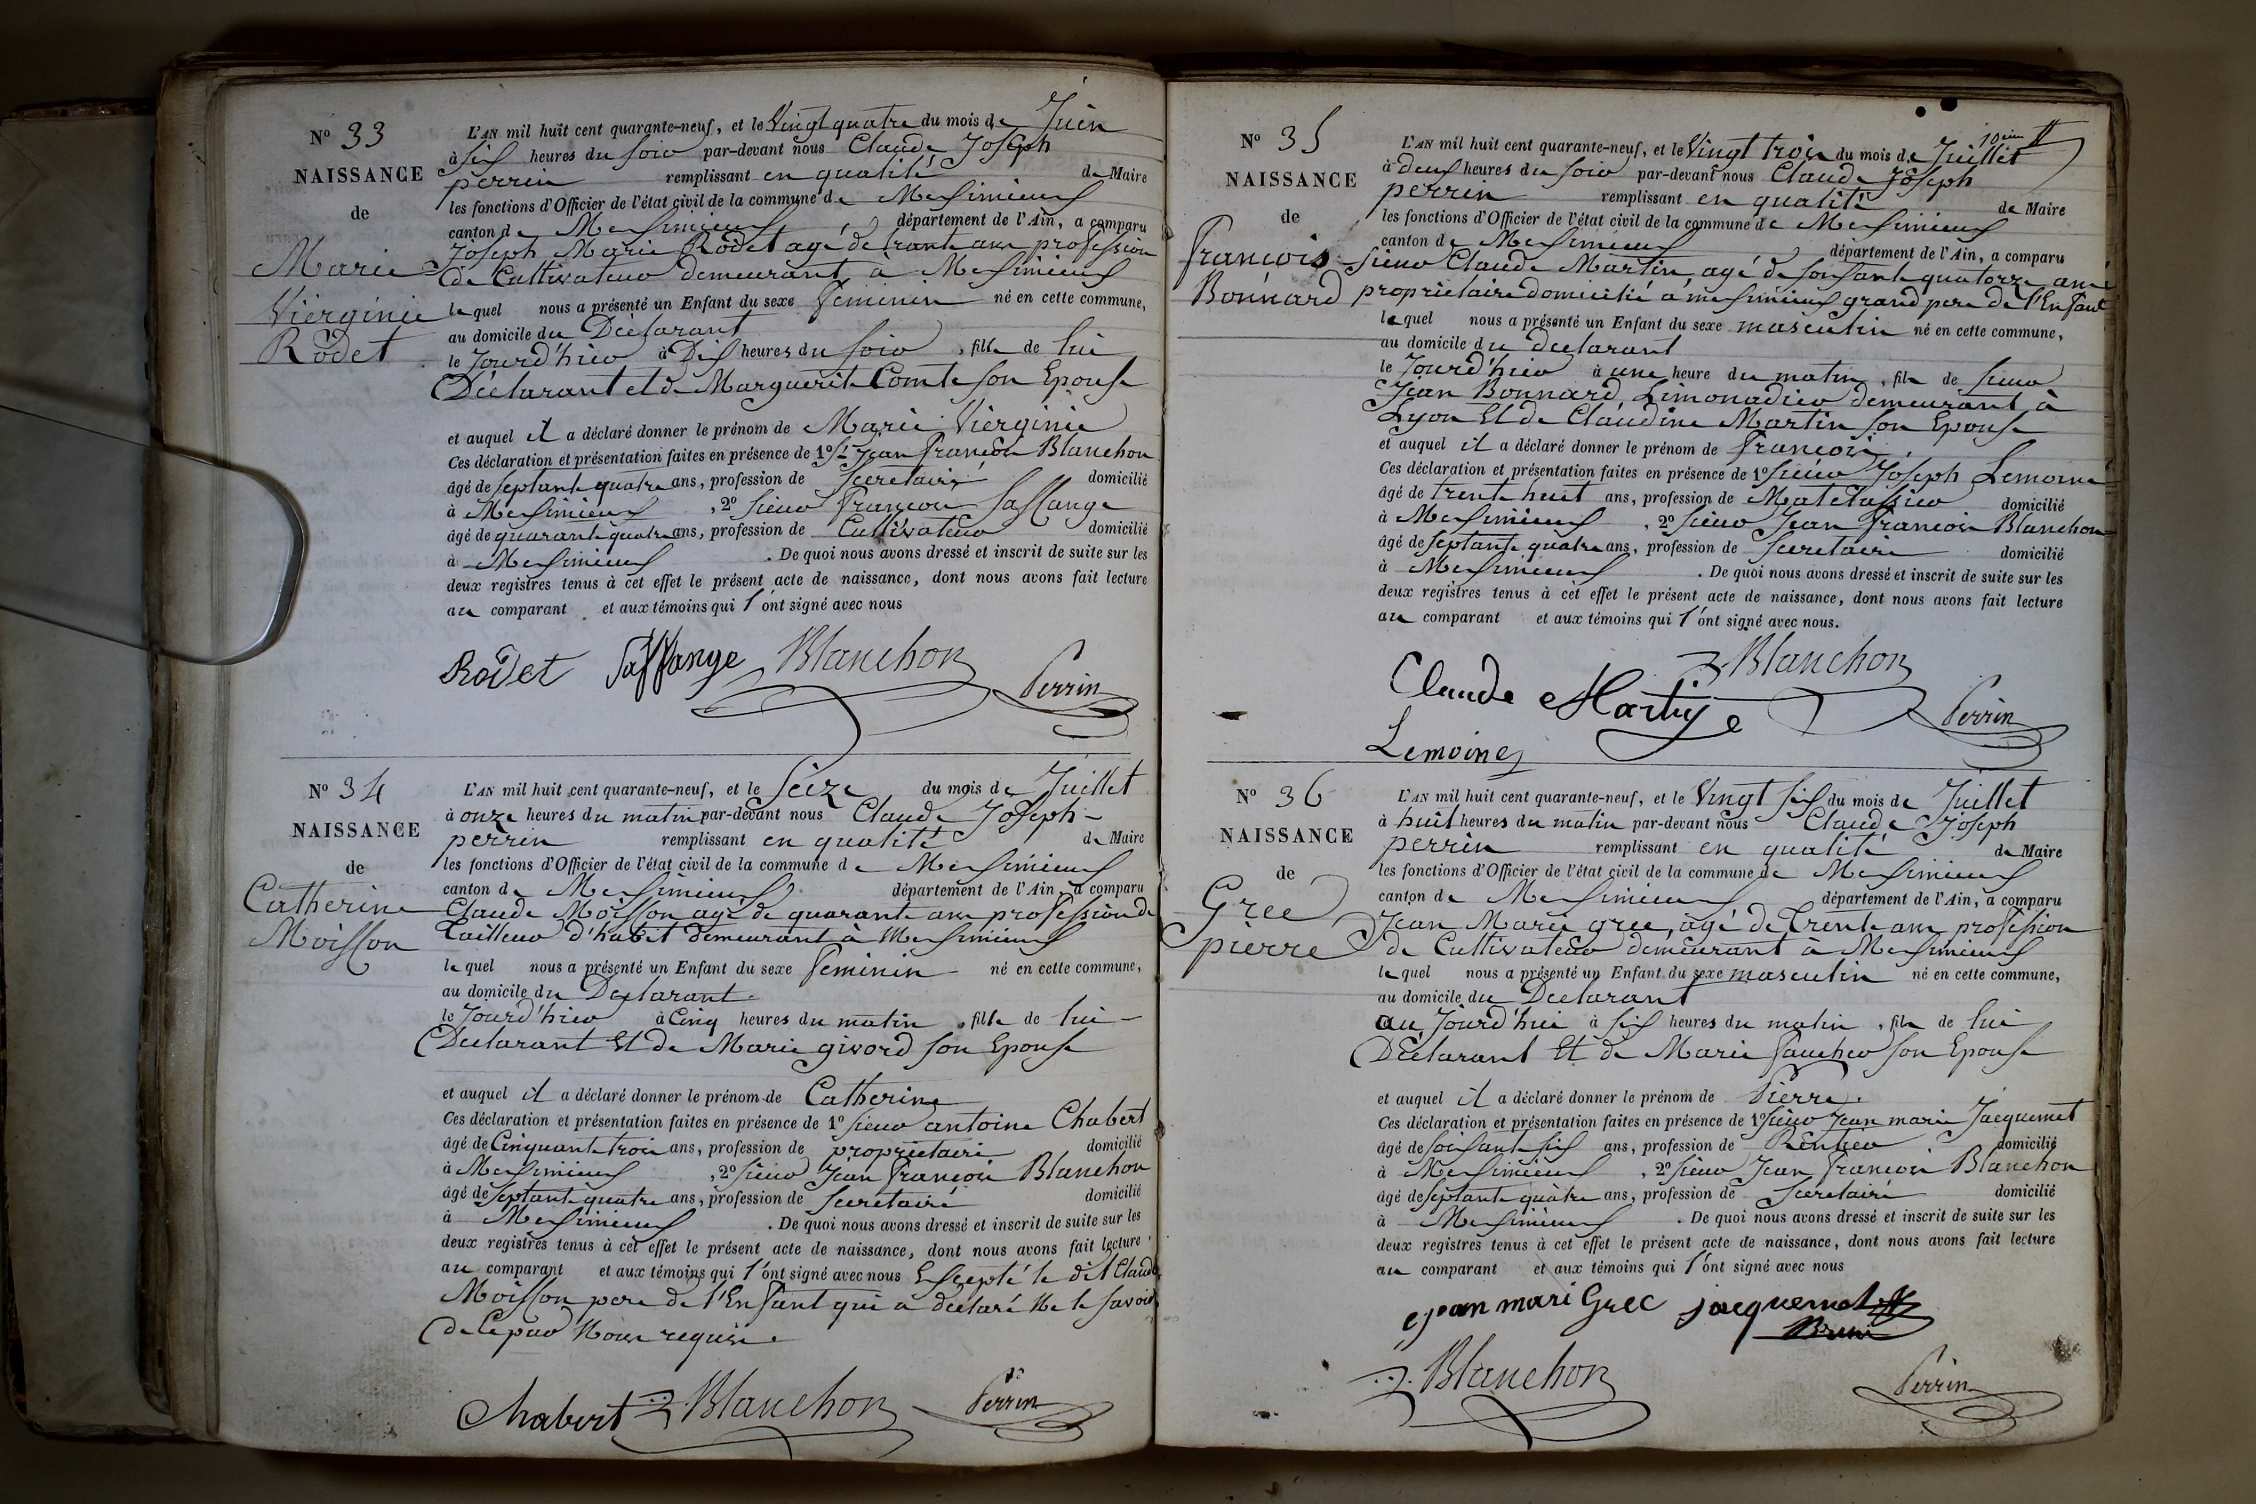 N° 33
NAISSANCE
de
Marie
Vierginie
Rodet
L'AN mil huit cent quarante-neuf, et le Vingt quatre du mois de Juin
à six heures du soir par-devant nous Claude Joseph
perrin remplissant en qualité de Maire
les fonctions d'Officier de l'état civil de la commune de Messimieux
canton de Messimieux département de l'Ain, a comparu
Joseph Marie Rodet agé de trante ans profession
de Cultivateur demeurant à Messimieux
lequel nous a présenté un Enfant du sexe Feminin né en cette commune,
au domicile du Déclarant
le Jourd'hier à Dix heures du soir, fille de lui
Déclarant et de Marguerite Comte son Epouse
et auquel il a déclaré donner le prénom de Marie Vierginie
Ces déclaration et présentation faites en présence de 1° Sr Jean françois Blanchon
âgé de septante quatre ans, profession de Secretaire domicilié
à Messimieux, 2° sieur françois Saffange
âgé de quarante quatre ans, profession de Cultivateur domicilié
à Messimieux. De quoi nous avons dressé et inscrit de suite sur les
deux registres tenus à cet effet le présent acte de naissance, dont nous avons fait lecture
au comparant et aux témoins qui l'ont signé avec nous
Rodet Saffange Blanchon
Perrin
N° 34
NAISSANCE
de
Catherine
Moisson
L'AN mil huit cent quarante-neuf, et le Seize du mois de Juillet
à onze heures du matin par-devant nous Claude Joseph
perrin remplissant en qualité de Maire
les fonctions d'Officier de l'état civil de la commune de Messimieux
canton de Messimieux département de l'Ain, a comparu
Claude Moisson agé de quarante ans profession de
Tailleur d'habit demeurant à Messimieux
lequel nous a présenté un Enfant du sexe feminin né en cette commune,
au domicile du Declarant
le Jourd'hier à Cinq heures du matin, fille de lui
Declarant Et de Marie givord son Epouse
et auquel il a déclaré donner le prénom de Catherine
Ces déclaration et présentation faites en présence de 1° sieur antoine Chabert
âgé de Cinquante trois ans, profession de proprietaire domicilié
à Messimieux, 2° sieur Jean françois Blanchon
âgé de septante quatre ans, profession de secretaire domicilié
à Messimieux. De quoi nous avons dressé et inscrit de suite sur les
deux registres tenus à cet effet le présent acte de naissance, dont nous avons fait lecture
au comparant et aux témoins qui l'ont signé avec nous Excepté le dit Claude
Moisson pere de l'Enfant qui a declaré Ne le savoir
de Ce par Nous requise
Chabert Blanchon Perrin
N° 35
NAISSANCE
de
francois
Bonnard
10eim
L'AN mil huit cent quarante-neuf, et le Vingt trois du mois de Juillet
à deux heures du soir par-devant nous Claude Joseph
perrin remplissant en qualité de Maire
les fonctions d'Officier de l'état civil de la commune de Messimieux
canton de Messimieux département de l'Ain, a comparu
sieur Claude Martin, agé de soixante quatorze ans
proprietaire domicilié à messimieux grand pere de l'Enfant
lequel nous a présenté un Enfant du sexe masculin né en cette commune,
au domicile du declarant
le Jourd'hier à une heure du matin, fils de sieur
Jean Bonnard Limonadier demeurant à
Lyon Et de Claudine Martin son Epouse
et auquel il a déclaré donner le prénom de françois
Ces déclaration et présentation faites en présence de 1° sieur Joseph Lemoine
âgé de trente huit ans, profession de Matelassier domicilié
à Messimieux, 2° sieur Jean françois Blanchon
âgé de septante quatre ans, profession de secretaire domicilié
à Messimieux. De quoi nous avons dressé et inscrit de suite sur les
deux registres tenus à cet effet le présent acte de naissance, dont nous avons fait lecture
au comparant et aux témoins qui l'ont signé avec nous.
Blanchon
Claude Martin Perrin
Lemoine
N° 36
NAISSANCE
de
Gree
pierre
L'AN mil huit cent quarante-neuf, et le Vingt six du mois de Juillet
à huit heures du matin par-devant nous Claude Joseph
perrin remplissant en qualité de Maire
les fonctions d'Officier de l'état civil de la commune de Messimieux
canton de Messimieux département de l'Ain, a comparu
Jean Marie gree, agé de Trente ans profession
de Cultivateur demeurant à Messimieux
lequel nous a présenté un Enfant du sexe masculin né en cette commune,
au domicile du Declarant
au Jourd'hui à six heures du matin, fils de lui
Déclarant Et de Marie faucheu son Epouse
et auquel il a déclaré donner le prénom de Pierre
Ces déclaration et présentation faites en présence de 1° sieur Jean marie Jacquemet
âgé de soixante six ans, profession de Rentier domicilié
à Messimieux, 2° sieur Jean françois Blanchon
âgé de septante quatre ans, profession de Secretaire domicilié
à Messimieux. De quoi nous avons dressé et inscrit de suite sur les
deux registres tenus à cet effet le présent acte de naissance, dont nous avons fait lecture
au comparant et aux témoins qui l'ont signé avec nous
jean mari Grec jacquemet
Blanchon Perrin